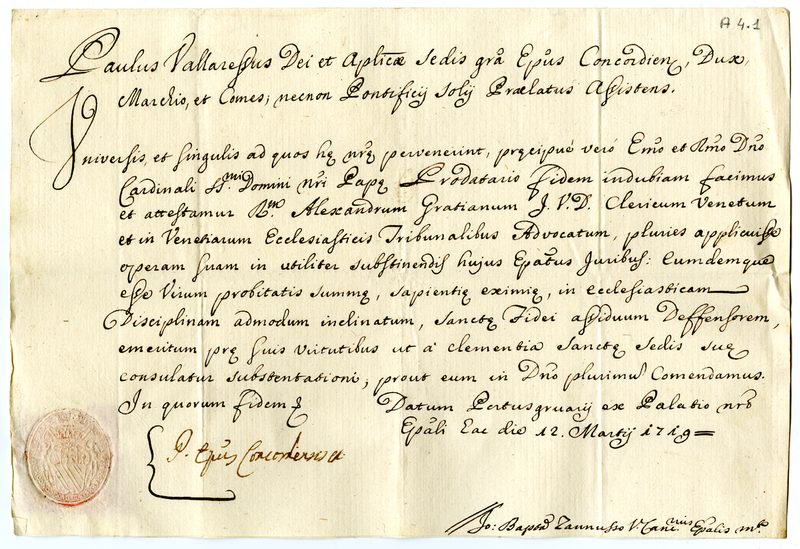 A 4.1
Paulus Vallaressus Dei et Aplicæ Sedis grã Epũs Concordien, Dux,
Marchio, et Comes, necnon Pontificij Solij Prælatus Assistens.
Universis, et singulis ad quos hę nrę pervenerint, pręcipuè verò Emo et Rmo Dno
Cardinali SS.mi Domini nri Papę Prodatario fidem indubiam facimus
et attestamur Rm. Alexandrum Gratianum J. V. D. Clericum Venetum
et in Venetiarum Ecclesiasticis Tribunalibus Advocatum, pluries applicuisse
operam suam in utiliter substinendis hujus Epatus Juribus: Eumdemque
esse Virum probitatis summę, sapientię eximię, in ecclesiasticam
Disciplinam admodum inclinatum, sanctę Fidei assiduum Deffensorem,
emeritum prę suis virtutibus ut à clementia Sanctę Sedis suę
consulatur substentationi, prout eum in Dno plurimũ Comendamus.
In quorum fidem Datum Portusgruarij ex Palatio nro
Epali Hac die 12. Martij 1719=
P. Epũs Concordiensis
Jo: Bapta Zannusso V. Canc.rius Epalis